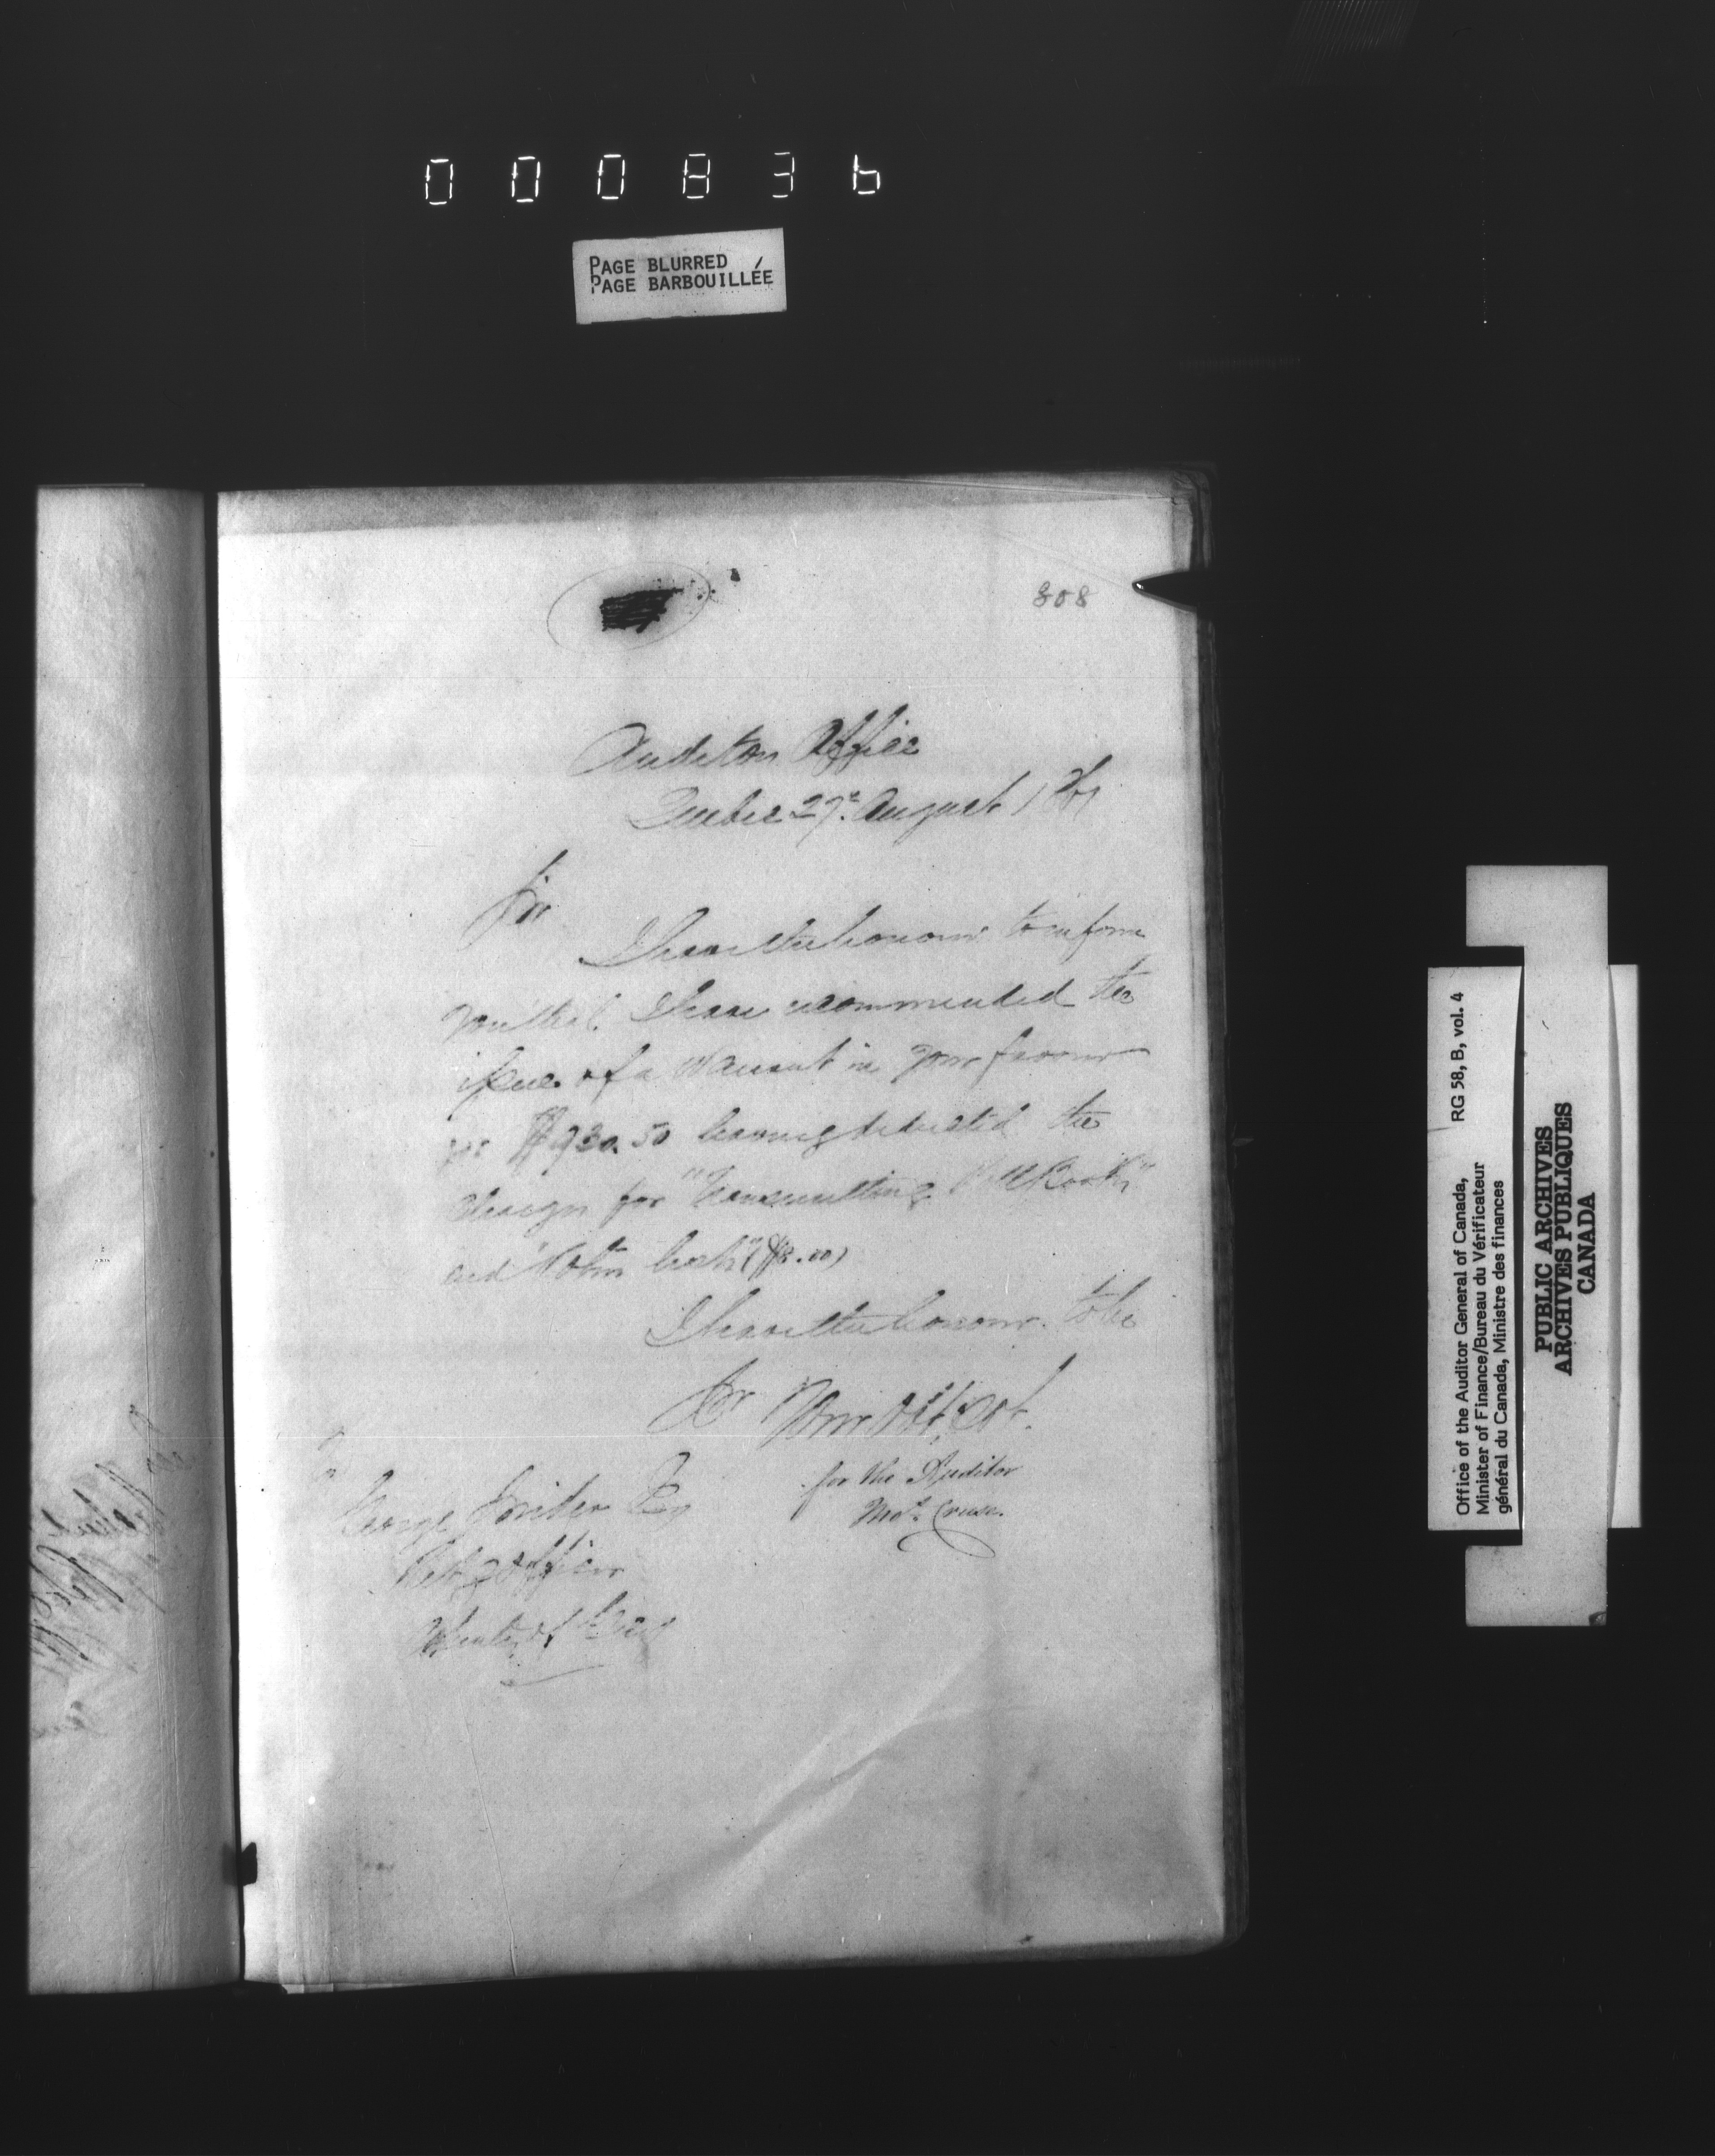 000836
PAGE BLURRED
PAGE BARBOUILLÉE
308
Auditors Office
Quebec 27th August 1861
Sir
I have the honour to inform
you that I have recommended the
issue of a Warrant in your favour
for $930.50 having deducted the
charges for "Transmitting Poll Books"
and " books" ($8.00)
I have the honour to be
Sir Your Obt Svt.
for the Auditor
Thos. Cruse.
George Esq
Retg Officer
County of
Office of the Auditor General of Canada, RG 58, B, vol. 4
Minister of Finance/Bureau du Vérificateur
général du Canada, Ministre des finances
PUBLIC ARCHIVES
ARCHIVES PUBLIQUES
CANADA